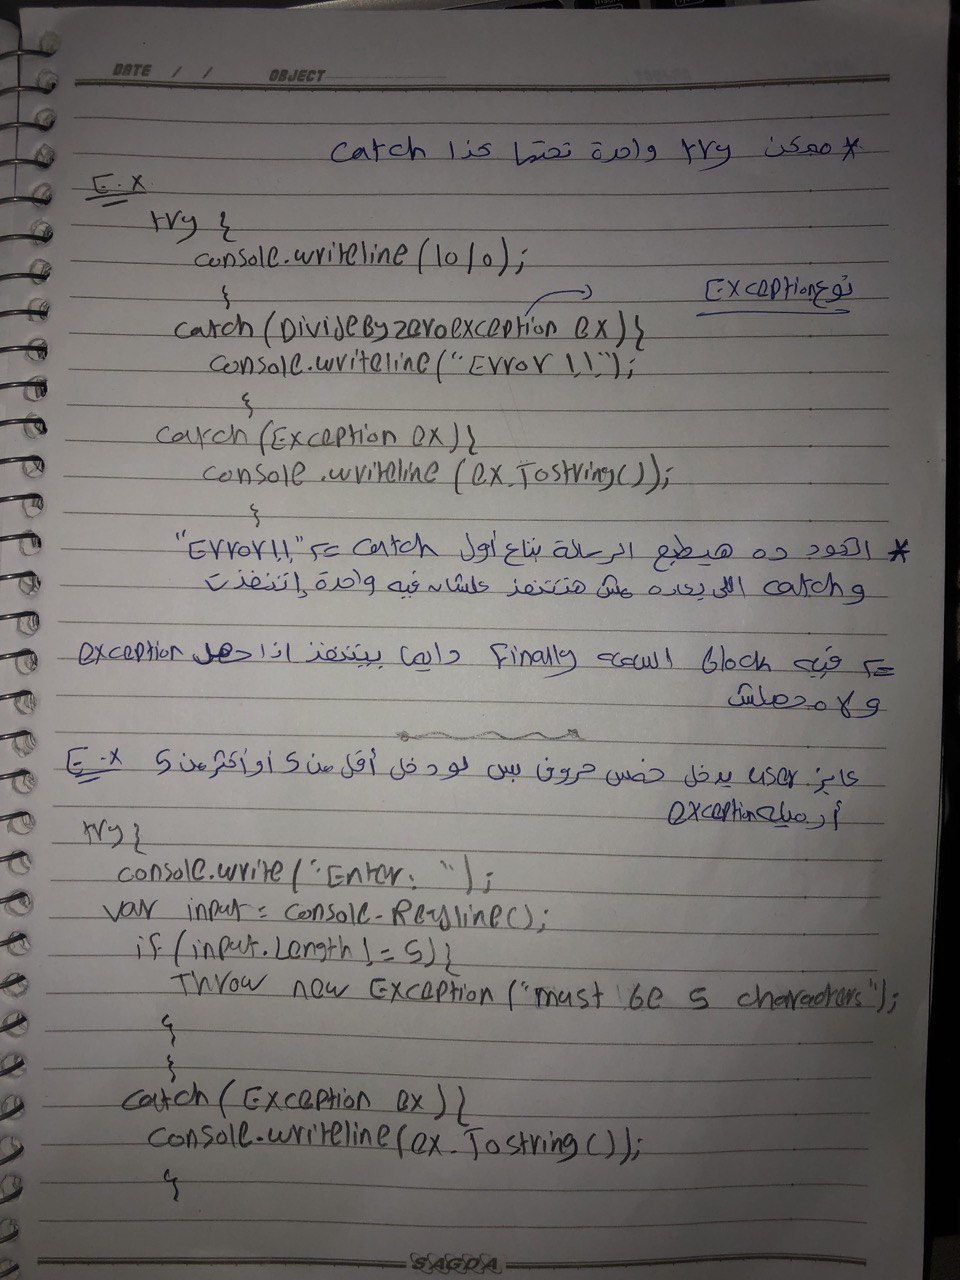 DATE / / OBJECT
* ممكن try واحدة تحتها كذا catch
E.x
try {
console.writeline (10/0);
}
نوع Exception
catch (DivideByzeroexception ex) {
console.writeline ("Error !!");
}
catch (Exception ex) {
console.writeline (ex.Tostring());
}
* الكود ده هيطبع الرسالة بتاع أول catch => "Error!!"
و catch اللي بعده مش هتتنفذ علشان فيه واحدة إتنفذت
=> فيه block اسمه Finally دايما بيتنفذ اذا حصل exception
ولا محصلش
E.x عايز user يدخل خمس حروف بس لو دخل أقل من 5 او أكثر من 5
أرميله exception
try {
console.write ("Enter: ");
var input = console.Readline();
if (input.Length != 5) {
Throw new Exception ("must be 5 characters");
}
}
catch (Exception ex) {
console.writeline (ex.Tostring());
}
SAGDA